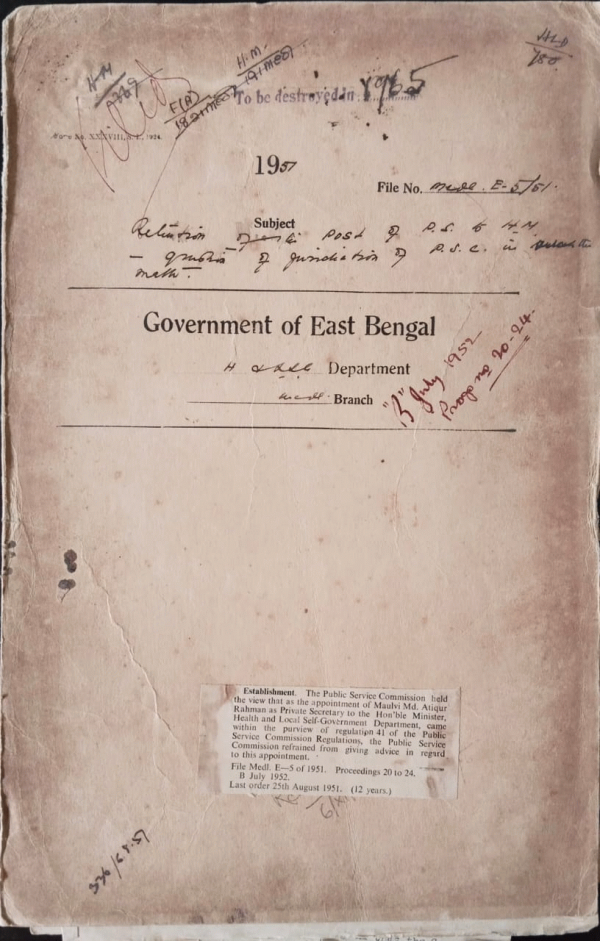 H.M
H.M
To be destroyed in 1965
1951
File No. Medl. E-5/51.
Subject
Retention of post of P.S. to H.M
— question of jurisdiction of P.S.C. in
Government of East Bengal
H & LSG Department
Medl. Branch
"B" July 1952
Progs nos 20-24.
Establishment. The Public Service Commission held
the view that as the appointment of Maulvi Md. Atiqur
Rahman as Private Secretary to the Hon'ble Minister,
Health and Local Self-Government Department, came
within the purview of regulation 41 of the Public
Service Commission Regulations, the Public Service
Commission refrained from giving advice in regard
to this appointment.
File Medl. E—5 of 1951. Proceedings 20 to 24.
B July 1952.
Last order 25th August 1951. (12 years.)